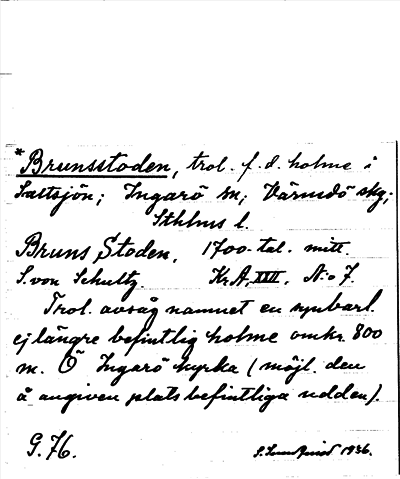 *Brunsstoden, trol. f. d. holme i
Saltsjön; Ingarö sn; Värmdö skg;
Sthlms l.
Bruns Stoden, 1700-tal. mitt.
S. von Schultz. Kr.A, XXII, N:o 7.
Trol. avsåg namnet en uppbarl.
ej längre befintlig holme omkr. 800
m. Ö Ingarö kyrka (möjl. den
å angiven plats befintliga udden).
G. 76. 1936.